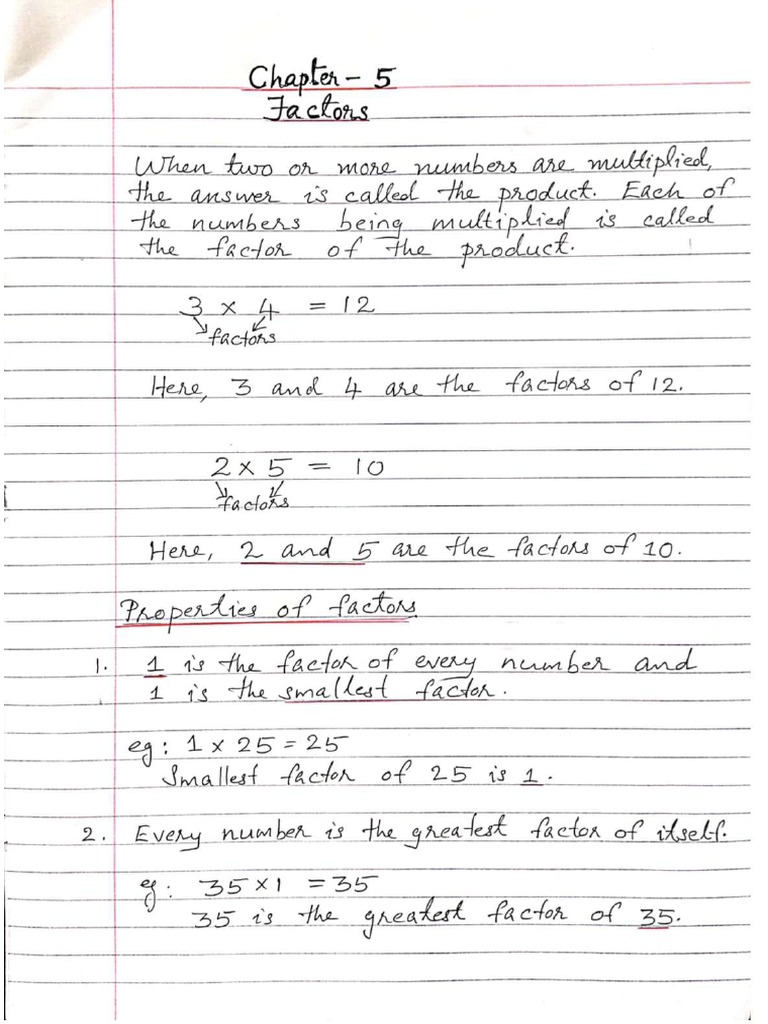 Chapter - 5
Factors
When two or more numbers are multiplied,
the answer is called the product. Each of
the numbers being multiplied is called
the factor of the product.
3 × 4 = 12
factors
Here, 3 and 4 are the factors of 12.
2 × 5 = 10
factors
Here, 2 and 5 are the factors of 10.
Properties of factors
1. 1 is the factor of every number and
1 is the smallest factor.
eg: 1 × 25 = 25
Smallest factor of 25 is 1.
2. Every number is the greatest factor of itself.
eg: 35 × 1 = 35
35 is the greatest factor of 35.